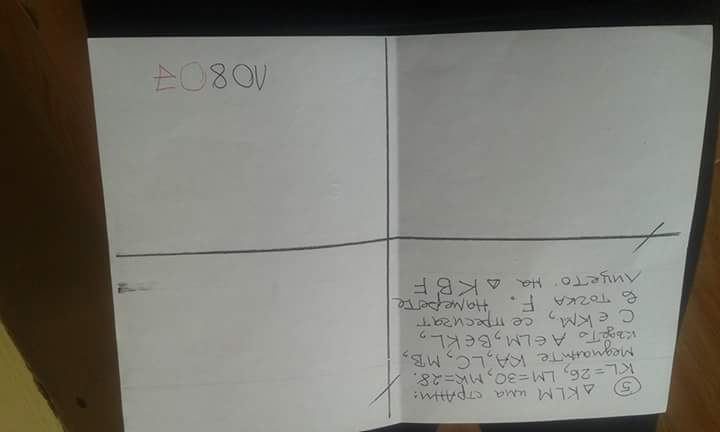 ⑤ △ KLM има страни:
KL=26, LM=30, MK=28.
Медианите KA, LC, MB,
където A∈LM, B∈KL,
C∈KM, се пресичат
в точка F. Намерете
лицето на △ KBF
10807